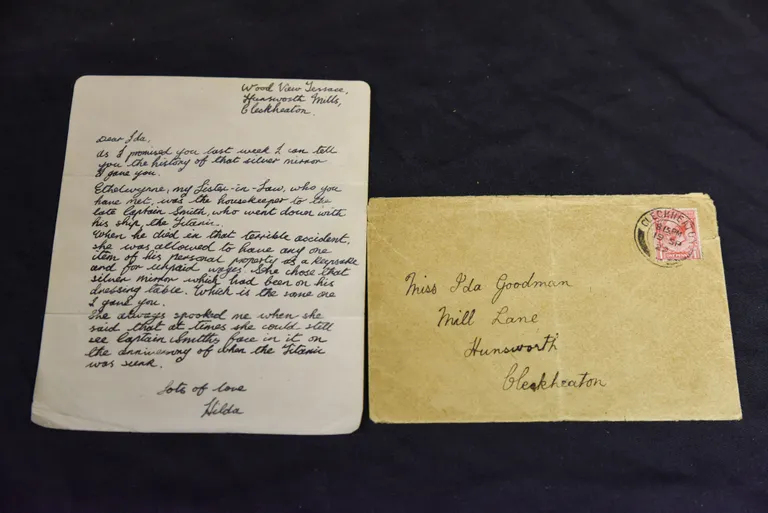 Wood View Terrace,
Hunsworth Mills,
Cleckheaton.
Dear Ida.
As I promised you last week I can tell
you the history of that silver mirror
I gave you.
Ethelwynne, my Sister-in-Law, who you
have met, was the housekeeper to the
late Captain Smith, who went down with
his ship, the Titanic.
When he died in that terrible accident,
she was allowed to have any one
item of his personal property as a keepsake
and for unpaid wages. She chose that
silver mirror which had been on his
dressing table. Which is the same one
I gave you.
She always spooked me when she
said that at times she could still
see Captain Smiths face in it on
the anniversary of when the Titanic
was sunk.
Lots of love
Hilda
CLECKHEATON
Miss Ida Goodman
Mill Lane
Hunsworth
Cleckheaton